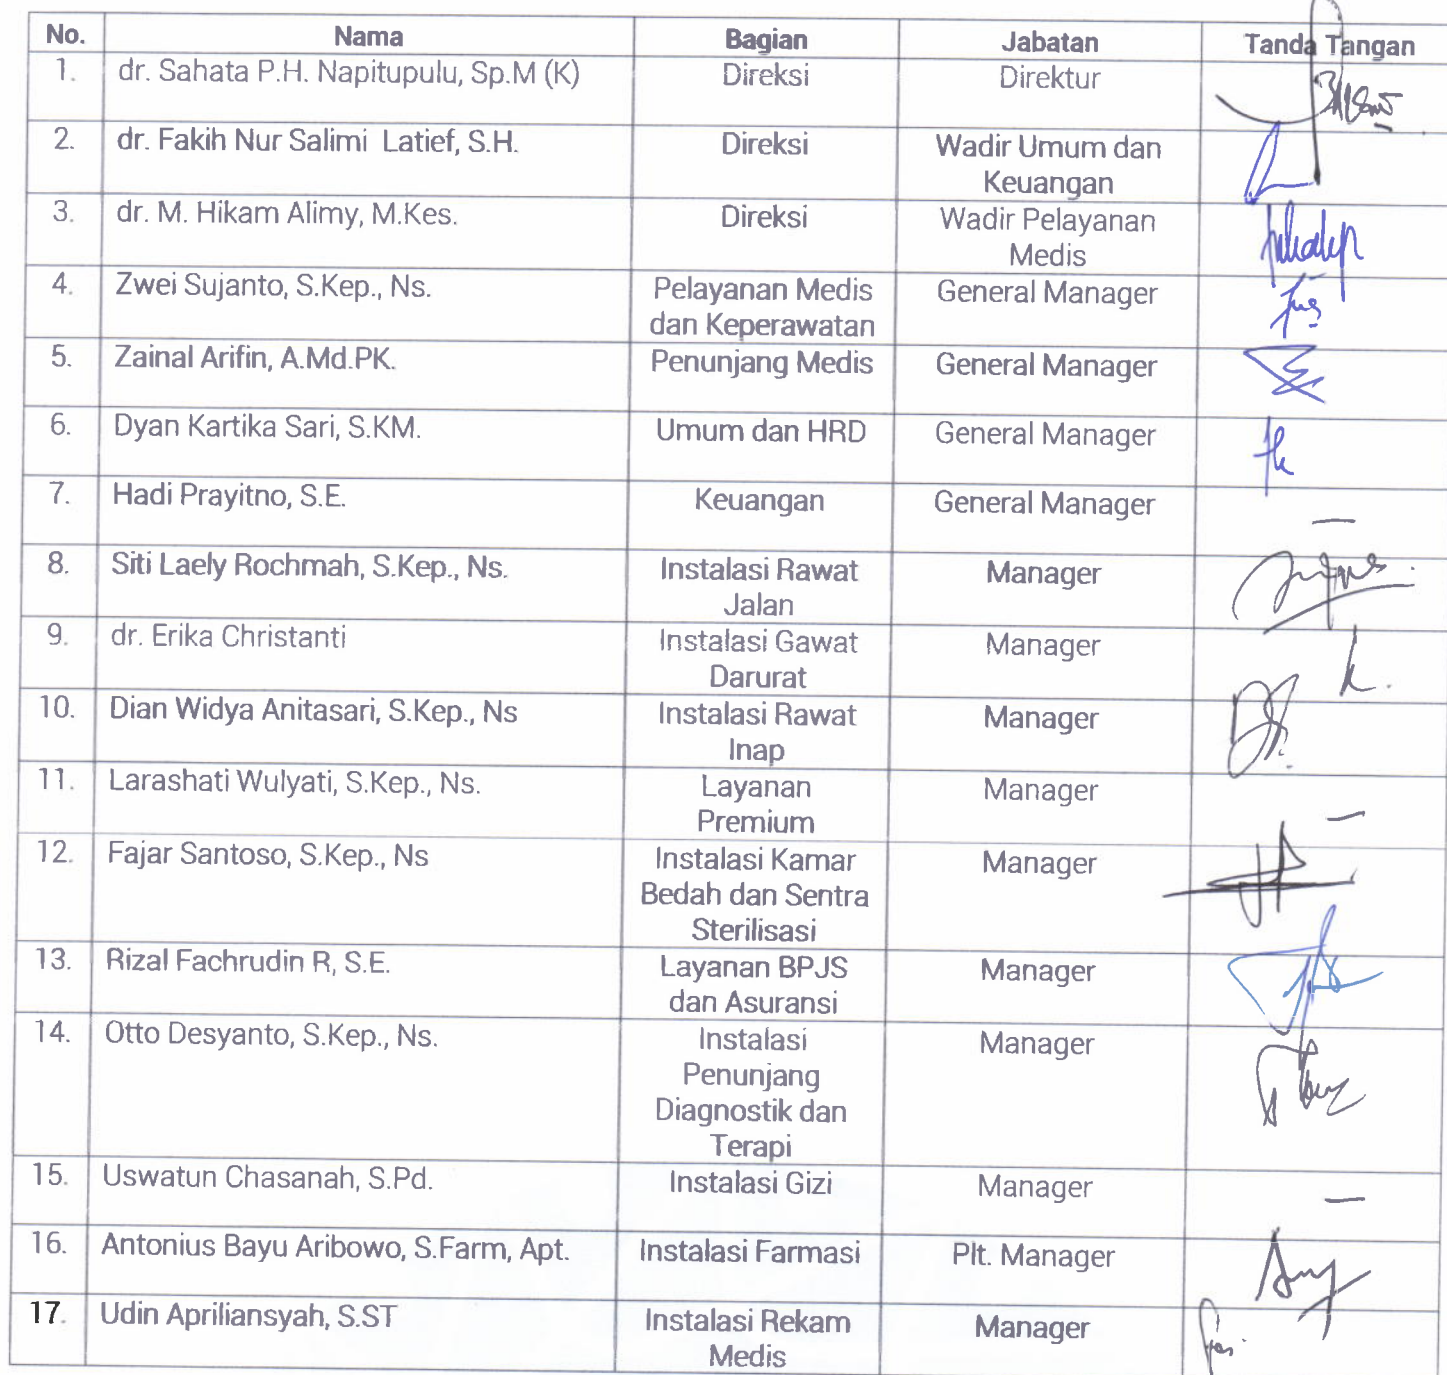 No. Nama Bagian Jabatan Tanda Tangan
1. dr. Sahata P.H. Napitupulu, Sp.M (K) Direksi Direktur
2. dr. Fakih Nur Salimi Latief, S.H. Direksi Wadir Umum dan
Keuangan
3. dr. M. Hikam Alimy, M.Kes. Direksi Wadir Pelayanan
Medis
4. Zwei Sujanto, S.Kep., Ns. Pelayanan Medis General Manager
dan Keperawatan
5. Zainal Arifin, A.Md.PK. Penunjang Medis General Manager
6. Dyan Kartika Sari, S.KM. Umum dan HRD General Manager
7. Hadi Prayitno, S.E. Keuangan General Manager
8. Siti Laely Rochmah, S.Kep., Ns. Instalasi Rawat Manager
Jalan
9. dr. Erika Christanti Instalasi Gawat Manager
Darurat
10. Dian Widya Anitasari, S.Kep., Ns Instalasi Rawat Manager
Inap
11. Larashati Wulyati, S.Kep., Ns. Layanan Manager
Premium
12. Fajar Santoso, S.Kep., Ns Instalasi Kamar Manager
Bedah dan Sentra
Sterilisasi
13. Rizal Fachrudin R, S.E. Layanan BPJS Manager
dan Asuransi
14. Otto Desyanto, S.Kep., Ns. Instalasi Manager
Penunjang
Diagnostik dan
Terapi
15. Uswatun Chasanah, S.Pd. Instalasi Gizi Manager
16. Antonius Bayu Aribowo, S.Farm, Apt. Instalasi Farmasi Plt. Manager
17. Udin Apriliansyah, S.ST Instalasi Rekam Manager
Medis